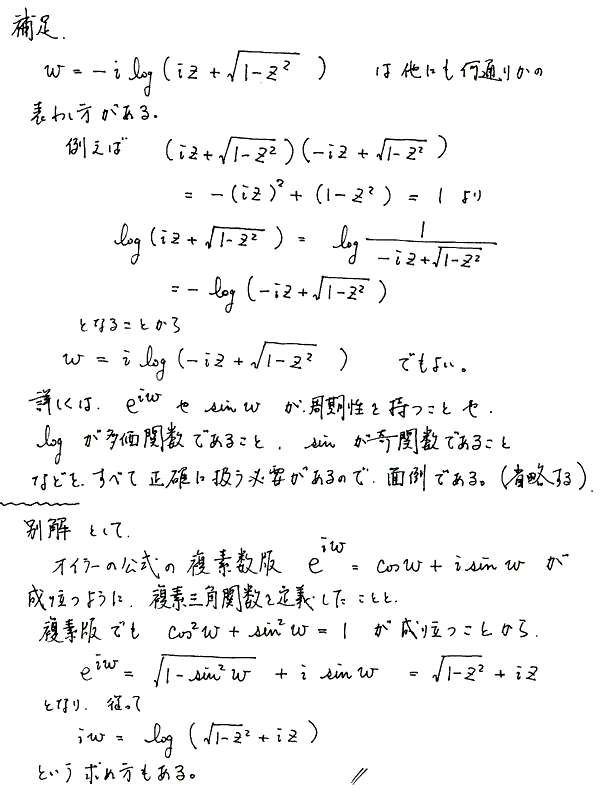 補足.
w = -i log(iz + √(1-z²) ) は他にも何通りかの
表わし方がある。
例えば (iz+√(1-z²))(-iz+√(1-z²))
= -(iz)² + (1-z²) = 1 より
log(iz+√(1-z²)) = log 1/(-iz+√(1-z²))
= - log(-iz+√(1-z²))
となることから
w = i log(-iz+√(1-z²) ) でもよい。
詳しくは、e^{iw} や sin w が周期性を持つことや、
log が多価関数であること、sin が奇関数であること
などを、すべて正確に扱う必要があるので、面倒である。(省略する).
別解として、
オイラーの公式の複素数版 e^{iw} = cos w + i sin w が
成り立つように、複素三角関数を定義したことと、
複素版でも cos²w + sin²w = 1 が成り立つことから、
e^{iw} = √(1-sin²w) + i sin w = √(1-z²) + iz
となり、従って
iw = log(√(1-z²) + iz)
という求め方もある。 //